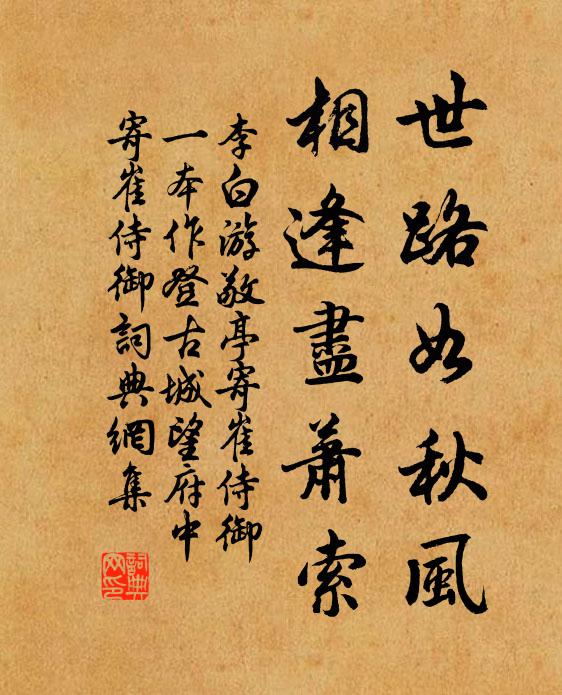 世路如秋風
相逢盡蕭索
李白游敬亭寄崔侍御
一本作登古城望府中
寄崔侍御詞典網集
詞典
网印